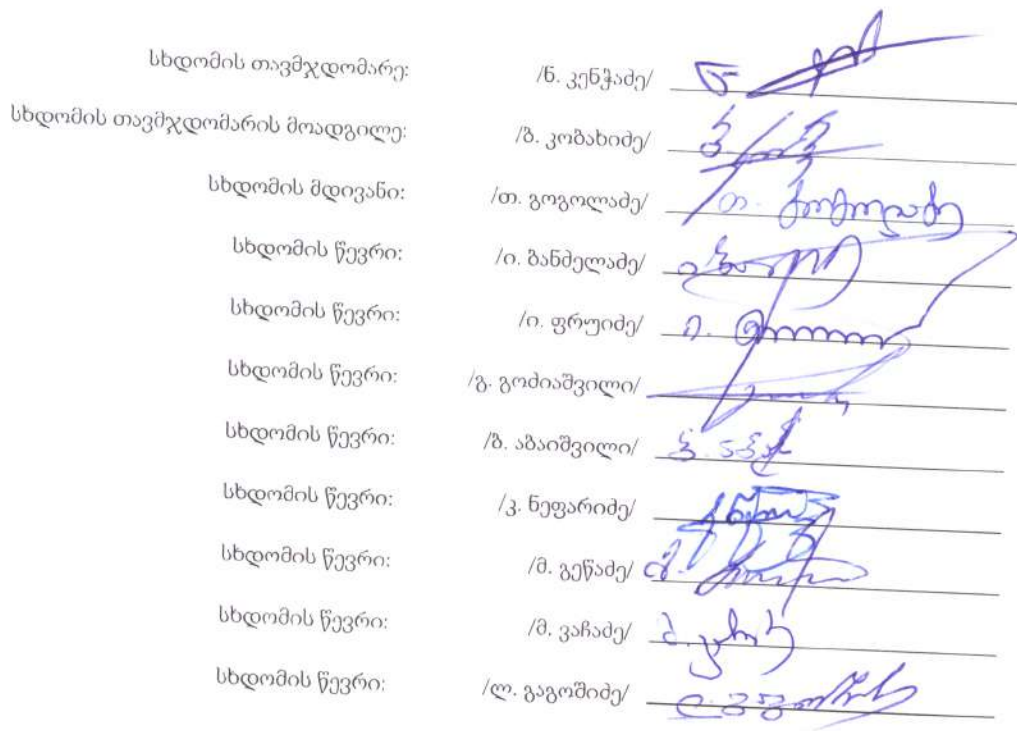 სხდომის თავმჯდომარე: /ნ. კენჭაძე/
სხდომის თავმჯდომარის მოადგილე: /ბ. კობახიძე/
სხდომის მდივანი: /თ. გოგოლაძე/ თ. გოგოლაძე
სხდომის წევრი: /ი. ბანძელაძე/
სხდომის წევრი: /ი. ფრუიძე/
სხდომის წევრი: /გ. გოძიაშვილი/
სხდომის წევრი: /ბ. აბაიშვილი/
სხდომის წევრი: /კ. ნეფარიძე/
სხდომის წევრი: /მ. გეწაძე/
სხდომის წევრი: /მ. ვაჩაძე/
სხდომის წევრი: /ლ. გაგოშიძე/